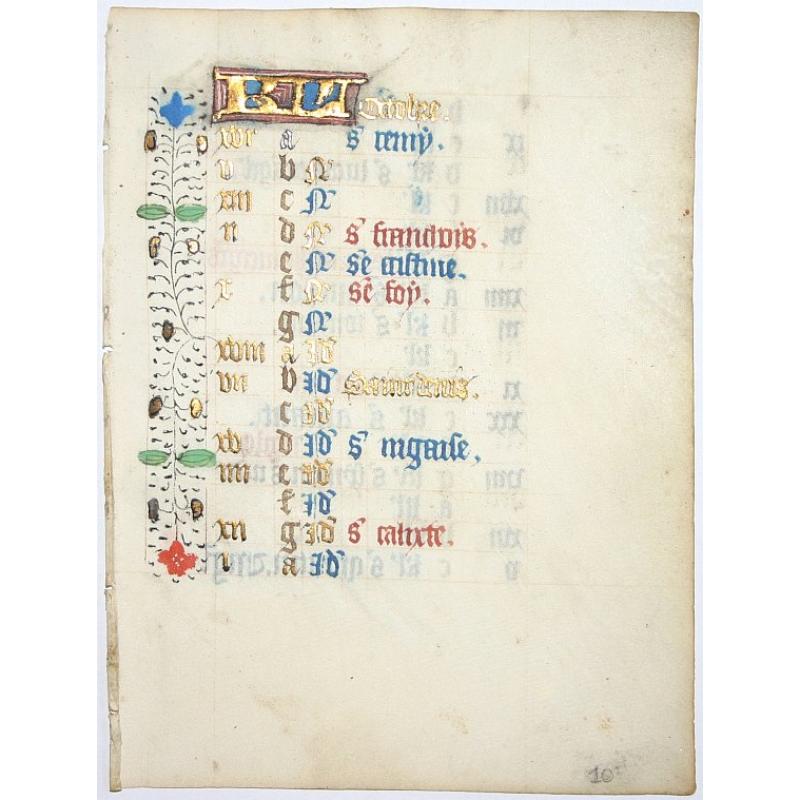 KL Octobre.
xvi a s̄ remy.
v b N̄
xiii c N̄
ii d N̄ s̄ franchois.
e N̄ sē cristine.
x f N̄ sē foy.
g N̄
xviii a Id̄
vii b Id̄ Saint denis.
c Id̄
xv d Id̄ s̄ nigaise.
iiii e Id̄
f Id̄
xii g Id̄ s̄ calixte.
i a Id̄
10